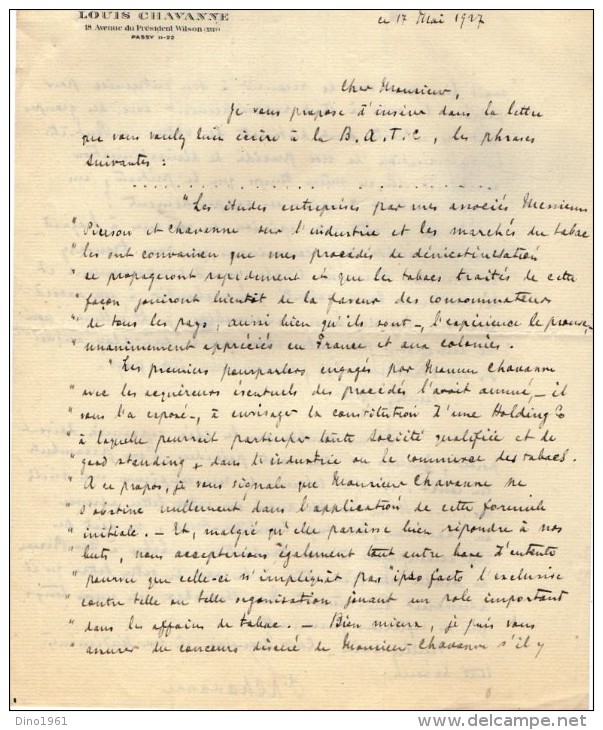 LOUIS CHAVANNE
18 Avenue du Président Wilson (XVIe)
PASSY 11-22
ce 17 Mai 1927
Cher Monsieur,
Je vous propose d'insérer dans la lettre
que vous voulez bien écrire à la B.A.T.C, les phrases
suivantes :
"Les études entreprises par mes associés Messieurs
" Pierson et Chavanne sur l'industrie et les marchés du tabac
" les ont convaincu que mes procédés de dénicotinisation
" se propageront rapidement et que les tabacs traités de cette
" façon jouiront bientôt de la faveur des consommateurs
" de tous les pays, aussi bien qu'ils sont _ l'expérience le prouve _
" unanimement appréciés en France et aux colonies.
" Les premiers pourparlers engagés par Monsieur Chavanne
" avec les acquéreurs éventuels des procédés l'avait amené, _ il
" vous l'a exposé _, à envisager la constitution d'une Holding Co
" à laquelle pourrait participer toute société qualifiée et de
" good standing, dans l'industrie ou le commerce des tabacs.
" A ce propos, je vous signale que Monsieur Chavanne ne
" s'obstine nullement dans l'application de cette formule
" initiale. _ Et, malgré qu'elle paraisse bien répondre à nos
" buts, nous accepterions également tout autre base d'entente
" pourvu que celle-ci n'impliquât pas "ipso facto" l'exclusive
" contre telle ou telle organisation jouant un role important
" dans les affaires de tabac. _ Bien mieux, je puis vous
" assurer du concours de Monsieur Chavanne s'il y
Dino1961
delcampe.net